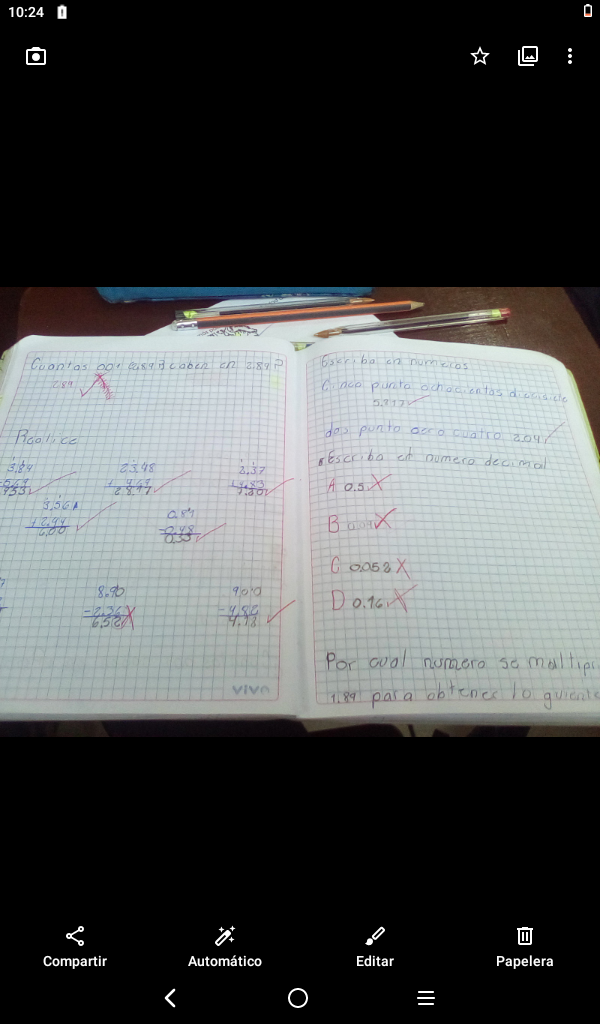 10:24
Cuantas 0.01 caben en 2.89?
2.89
Realice
3,84
23,48
2,37
+ 4,83
3,56
+ 2,44
6,00
0,81
- 0,48
0,33
8,90
- 2,36
9,00
- 4,82
4,18
VIVA
Escriba en numeros
Cinco punto ochocientos diecisiete
5,817
dos punto cero cuatro 2.04
Escriba en numero decimal
A 0.5
B
C 0.053
D 0.16
Por cual numero se multipi
1.89 para obtener lo guiente
Compartir
Automático
Editar
Papelera